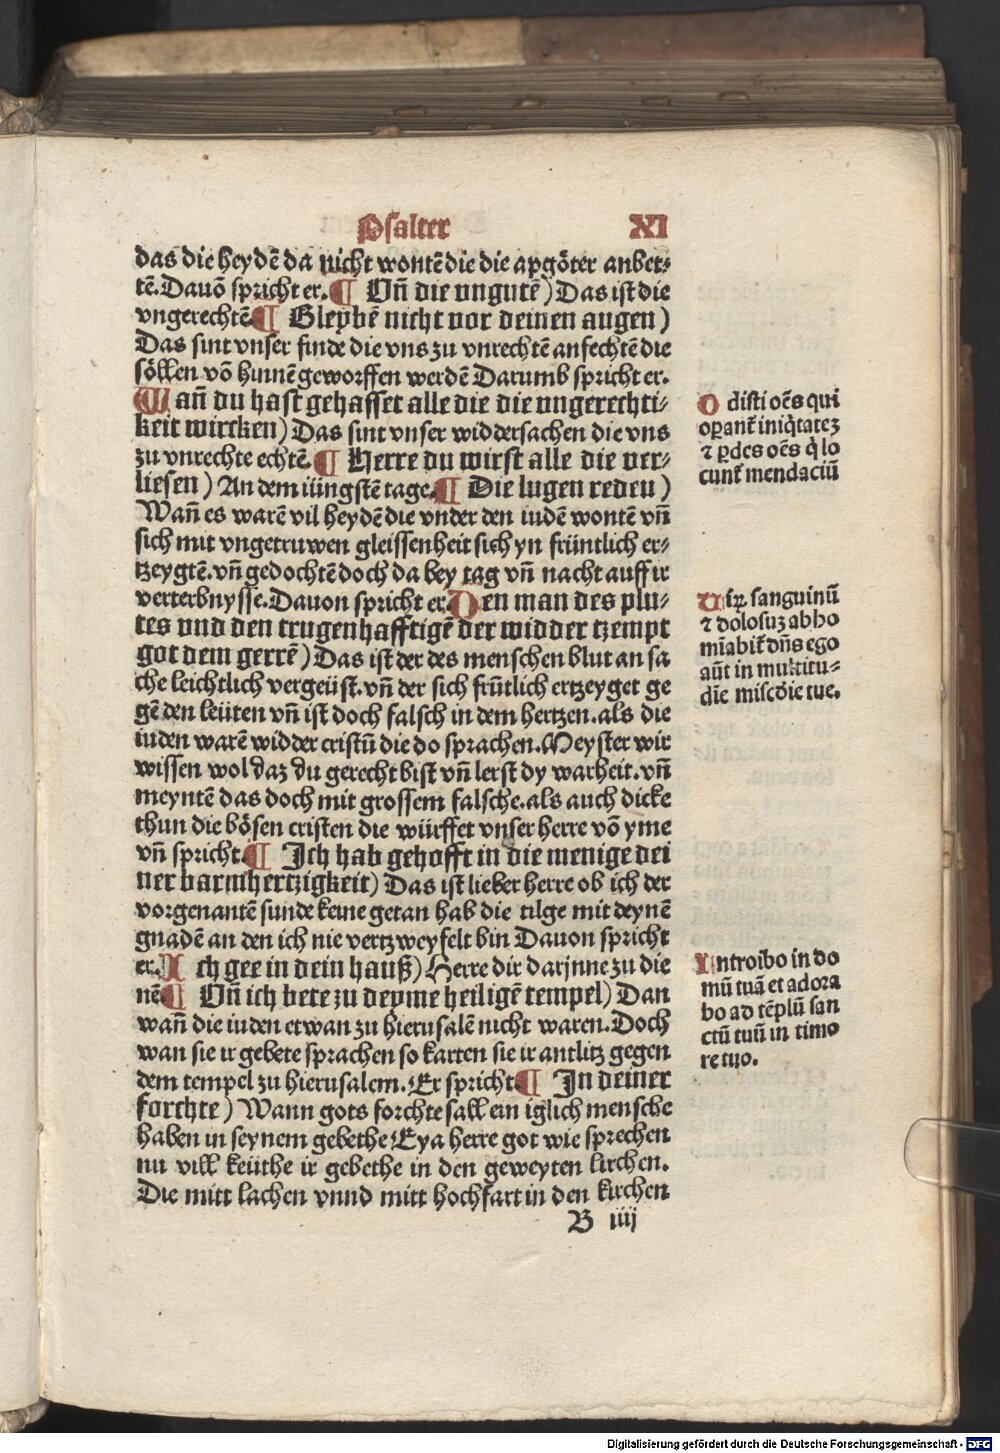 Psalter XI
das die heydē da nicht wontē die die apgöter anbet⸗
tē. Dauō spricht er. ¶ Vn̄ die vngutē) Das ist die
vngerechtē ¶ Bleybē nicht vor deinen augen)
Das sint vnser finde die vns zu vnrechtē anfechtē die
söllen vō himēgeworffen werdē Darumb spricht er.
Wan̄ du hast gehasset alle die die vngerechti⸗
keit wircken) Das sint vnser widdersachen die vns
zu vnrechte echtē. ¶ Herre du wirst alle die ver⸗
liesen) An dem iüngstē tage. ¶ Die lugen reden)
Wan̄ es warē vil heydē die vnder den iudē wontē vn̄
sich mit vngetruwen gleissenheit sich yn früntlich er⸗
tzeygtē. vn̄ gedochtē doch da bey tag vn̄ nacht auff ir
verterbnysse. Dauon spricht er. Den man des plu⸗
tes vnd den trugenhafftigē der widder tzempt
got dem herrē) Das ist der des menschen blut an sa
che leichtlich vergeüst. vn̄ der sich frūtlich ertzeyget ge
gē den leüten vn̄ ist doch falsch in dem hertzen. als die
iuden warē widder cristū die do sprachen. Meyster wir
wissen wol daz du gerecht bist vn̄ lerst dy warheit. vn̄
meyntē das doch mit grossem falsche. als auch dicke
thun die bösen cristen die würffet vnser herre vō yme
vn̄ spricht. ¶ Ich hab gehofft in die menige dei
ner barmhertzigkeit) Das ist lieber herre ob ich der
vorgenantē sunde keine getan hab die tilge mit deynē
gnadē an den ich nie vertzweyfelt bin Dauon spricht
er. Ich gee in dein hauß) Herre dir darjnne zu die
nē ¶ Vn̄ ich bete zu deyme heiligē tempel) Dan
wan̄ die iuden etwan zu hierusalē nicht waren. Doch
wan sie ir gebete sprachen so karten sie ir antlitz gegen
dem tempel zu hierusalem. Er spricht ¶ In deiner
forchte) Wann gots forchte sall ein iglich mensche
haben in seynem gebethe Eya herre got wie sprechen
nu vill leüthe ir gebethe in den geweyten kirchen.
Die mitt lachen vnnd mitt hochfart in den kirchen
B iiij
Odisti oēs qui
oꝑant̄ iniq̄tatez
⁊ ꝑdes oēs q̄ lo
cunt̄ mendaciū
Uiꝝ sanguinū
⁊ dolosuz abho
mīabit̄ dn̄s ego
aūt in multitu⸗
dīe misc̄die tue.
Introibo in do
mū tuā et adora
bo ad tēplū san
ctū tuū in timo
re tuo.
Digitalisierung gefördert durch die Deutsche Forschungsgemeinschaft - DFG